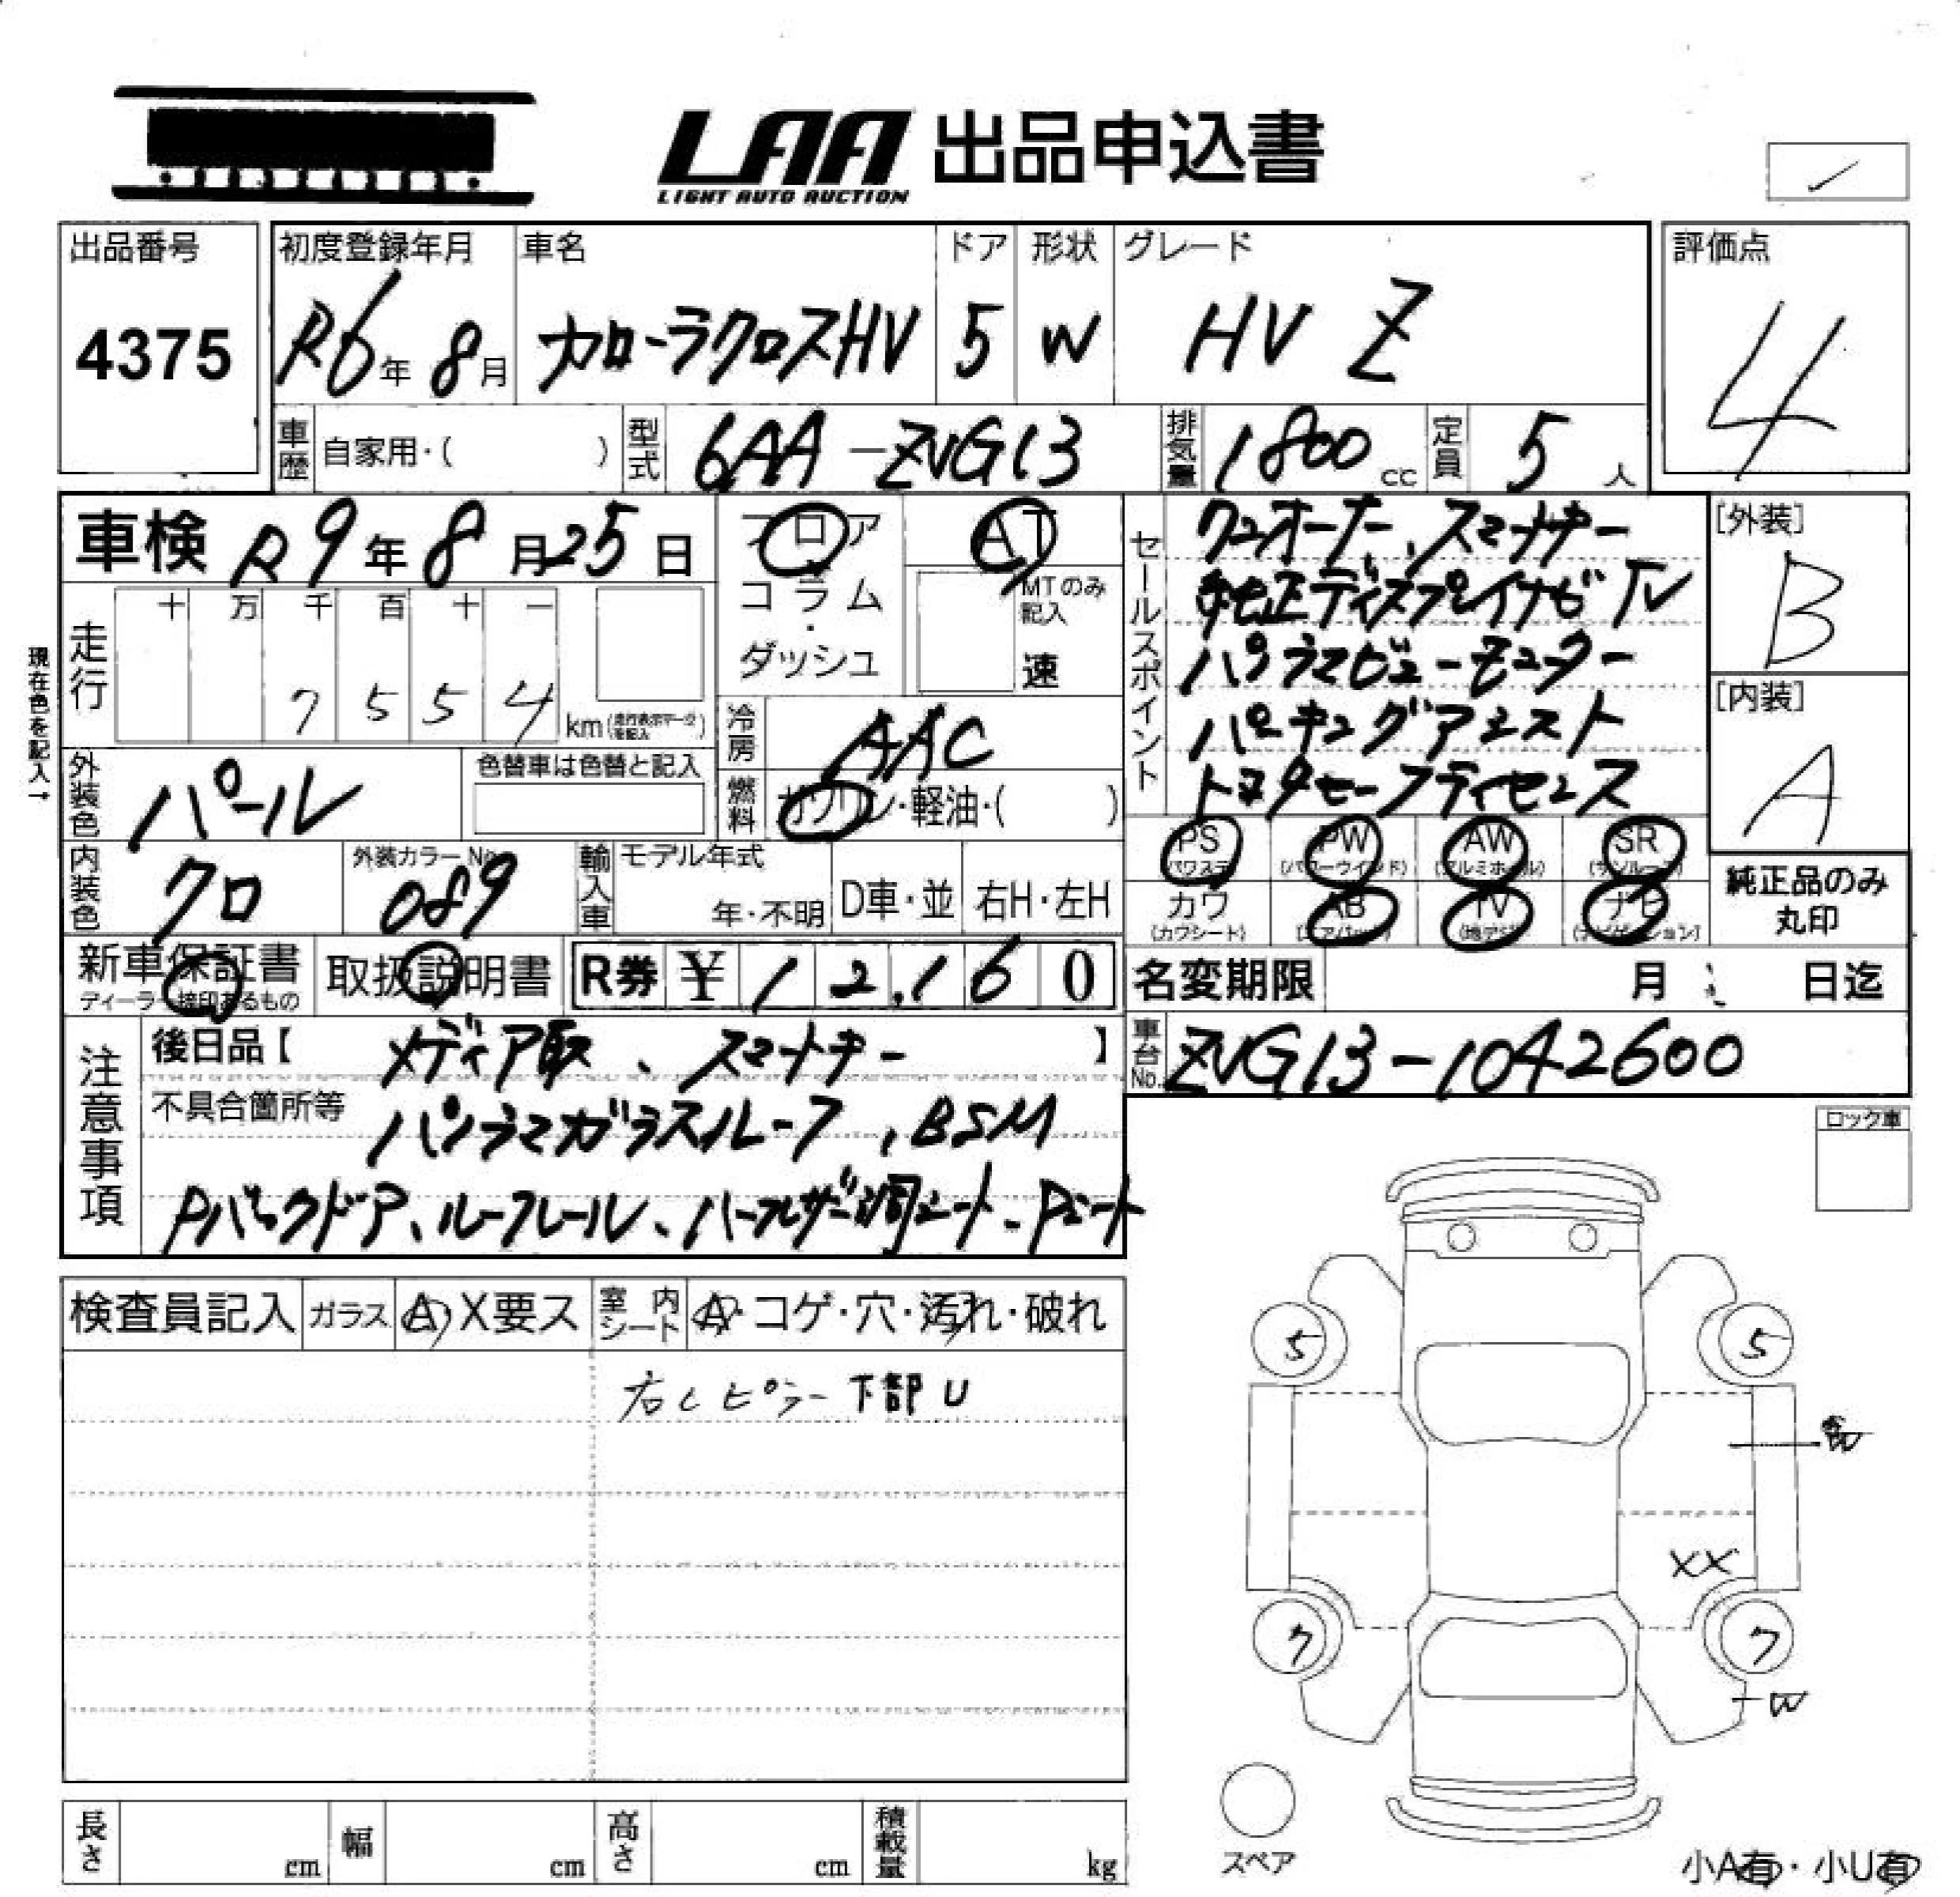 LAA 出品申込書
LIGHT AUTO AUCTION
出品番号
4375
初度登録年月
R6年 8月
車名
カローラクロスHV
ドア
5
形状
W
グレード
HV Z
評価点
4
車歴 自家用・( )
型式 6AA-ZVG13
排気量 1800 cc
定員 5 人
車検 R9年8月25日
フロア
コラム
・
ダッシュ
AT
MTのみ記入
速
セールスポイント
ワンオーナー、スマートキー
純正ディスプレイナビ TV
パノラマビューモニター
パーキングアシスト
トヨタセーフティセンス
[外装]
B
[内装]
A
現在色を記入→
走行
十 万 千 百 十 一
7 5 5 4 km
冷房 AAC
燃料 ガソリン・軽油・( )
外装色 パール
色替車は色替と記入
内装色 クロ
外装カラーNo. 089
輸入車
モデル年式
年・不明
D車・並
右H・左H
PS (パワステ)
PW (パワーウインド)
AW (アルミホイル)
SR (サンルーフ)
カワ (カワシート)
AB (エアバック)
TV (地デジ)
ナビ (ナビゲーション)
純正品のみ
丸印
新車保証書
ディーラー捺印あるもの
取扱説明書
R券 ¥ 12,160
名変期限 月 日迄
車台No. ZVG13-1042600
注意事項
後日品【 メディア取、スマートキー 】
不具合箇所等 パノラマガラスルーフ、BSM
Pバックドア、ルーフレール、ハーフレザー調シート、Pシート
ロック車
検査員記入
ガラス A X要ス
室内シート A・コゲ・穴・汚れ・破れ
右Cピラー下部U
5
5
XX
7
7
W
スペア
小A有・小U有
長さ cm
幅 cm
高さ cm
積載量 kg